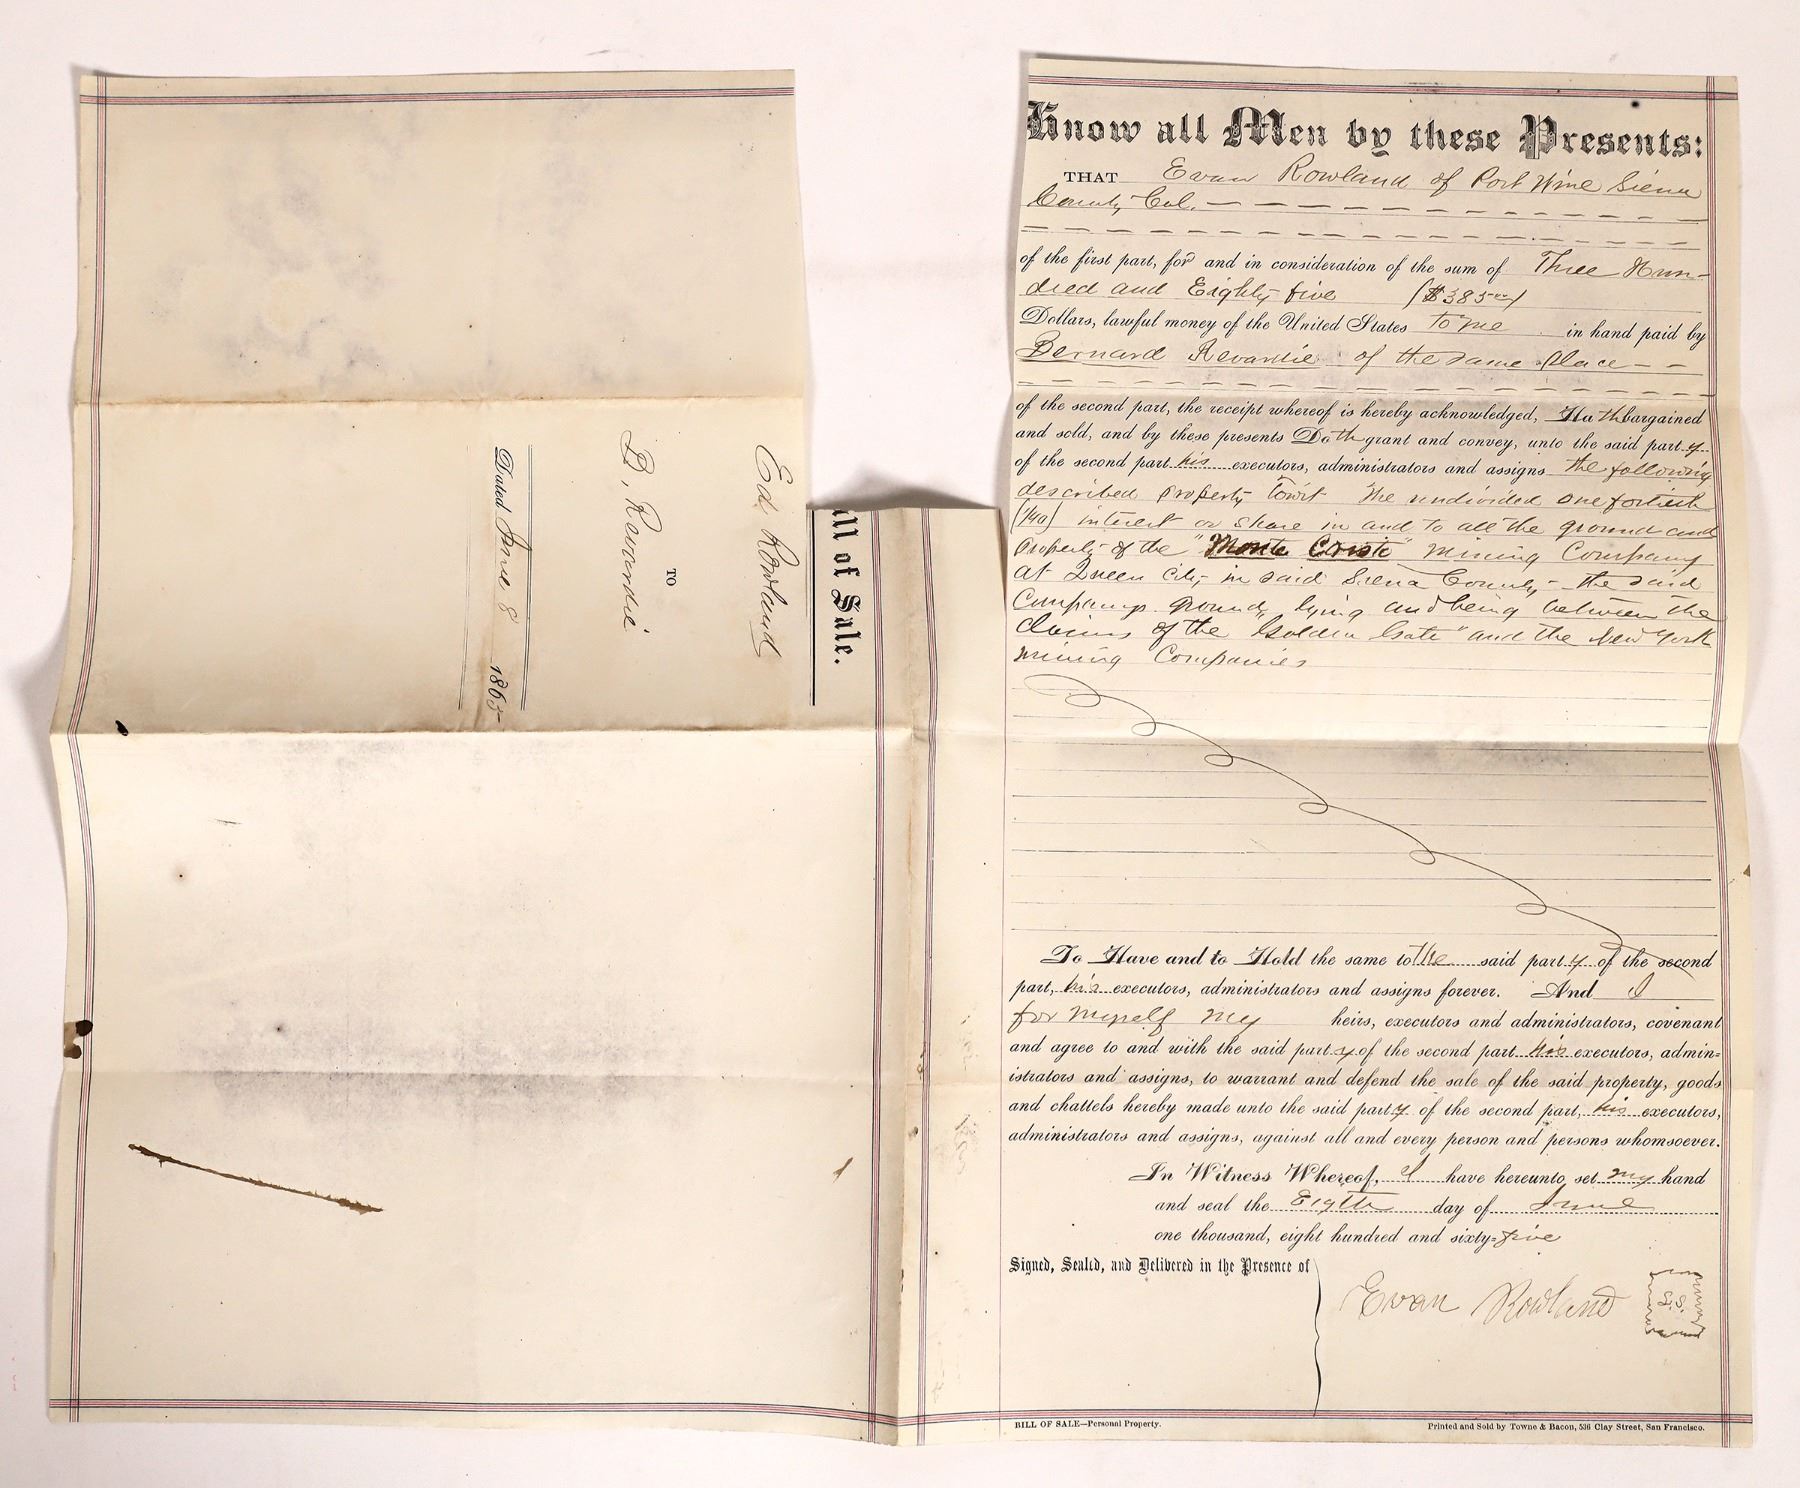 Know all Men by these Presents:
THAT Evan Rowland of Port Wine Sierra
County, Cal.
of the first part, for and in consideration of the sum of Three Hun-
dred and Eighty five ($385
Dollars, lawful money of the United States to me in hand paid by
Bernard of the same place
of the second part, the receipt whereof is hereby acknowledged, Hath bargained
and sold, and by these presents Doth grant and convey, unto the said party
of the second part his executors, administrators and assigns the following
described property towit The undivided one fortieth
(1/40) interest or share in and to all the ground and
property of the "Monte Cristo" Mining Company
at Queen City in said Sierra County - the said
Companys ground, lying and being between the
claims of the "Golden Gate" and the New York
Mining Companies
To Have and to Hold the same to the said party of the second
part, his executors, administrators and assigns forever. And I
for myself my heirs, executors and administrators, covenant
and agree to and with the said party of the second part his executors, admin=
istrators and assigns, to warrant and defend the sale of the said property, goods
and chattels hereby made unto the said party of the second part, his executors,
administrators and assigns, against all and every person and persons whomsoever.
In Witness Whereof, I have hereunto set my hand
and seal the Eigth day of June
one thousand, eight hundred and sixty=five
Signed, Sealed, and Delivered in the Presence of
Evan Rowland
L.S.
BILL OF SALE—Personal Property.
Printed and Sold by Towne & Bacon, 536 Clay Street, San Francisco.
ill of Sale.
Ed Rowland
TO
B.
Dated June 8 1865